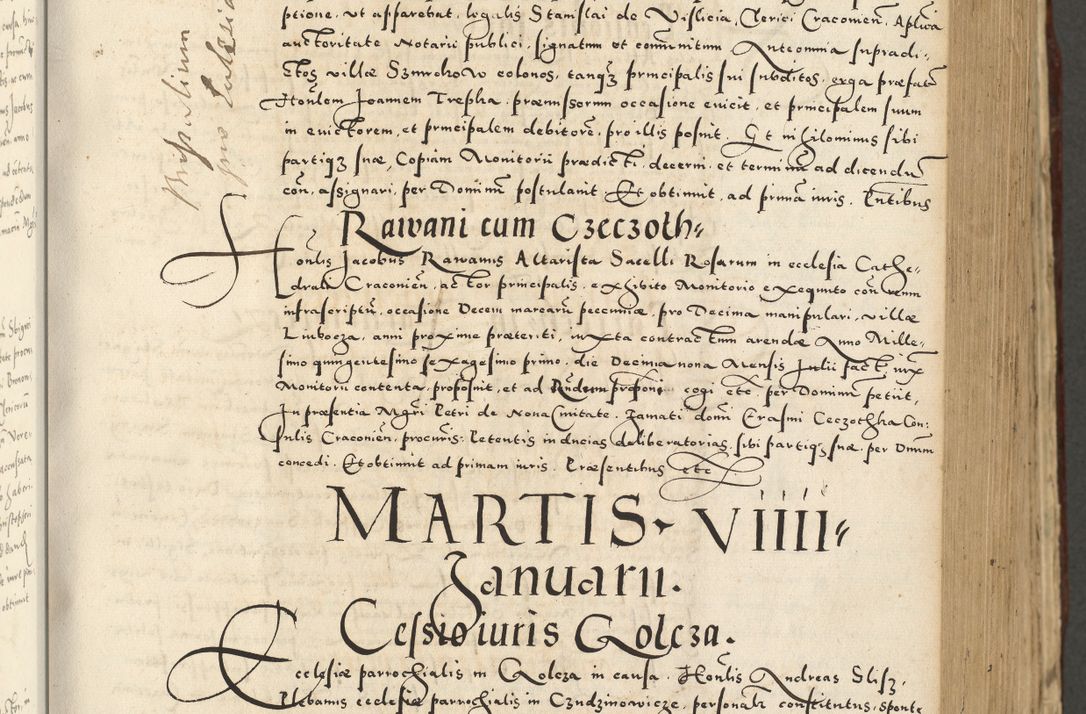 ptione, ut apparebat, legalis Stanislai de Vislicia, Clerici Cracovien, Aplica
auctoritate Notarii publici, signatum et communitum, Ante omnia supradi-
ctos villæ Szmrokow colonos, tanqz principalis sui subditos, erga præfatu
Honlem Joannem Trepka, præmissorum occasione evicit, et principalem suum
in evictorem, et principalem debitore, pro illis posuit. Et nihilominus sibi
partiqz suæ, Copiam Monitorii prædicti, decerni, et terminu ad dicendu
con, assignari, per Dominum postulavit Et obtinuit, ad prima iuris. Entibus
Rawani cum Czeczoth
Honlis Jacobus Rawanus Altarista Sacelli Rosarum in ecclesia Cathe-
drali Cracovien, actor principalis, exhibito Monitorio exequuto con
infrascriptu, occasione Decem marcaru pecuniæ, pro Decima manipulari, villæ
Liubocza, anni proximo præteriti, iuxta contractum arendæ Anno Mille-
simo quingentesimo sexagesimo primo, die Decima nona Mensis Julii fact iux
Monitorii contenta, proposuit, et ad cogi etc per Dominum petiit,
In præsentia Mgri Petri de Nova Civitate. Famati domi Erasmi Ceczothka Con-
sulis Cracovien, procuris: Petentis inducias deliberatorias, sibi partiqz suæ, per Dnum
concedi. Et obtinuit ad primam iuris. Præsentibus etc
MARTIS VIIII
Januarii.
Cessio iuris Golcza.
Ecclesiæ parrochialis in Golcza in causa. Honlis Andreas Slisz,
Plebanus ecclesiæ parrochialis in Czudzinowicze, personalr constitutus, sponte